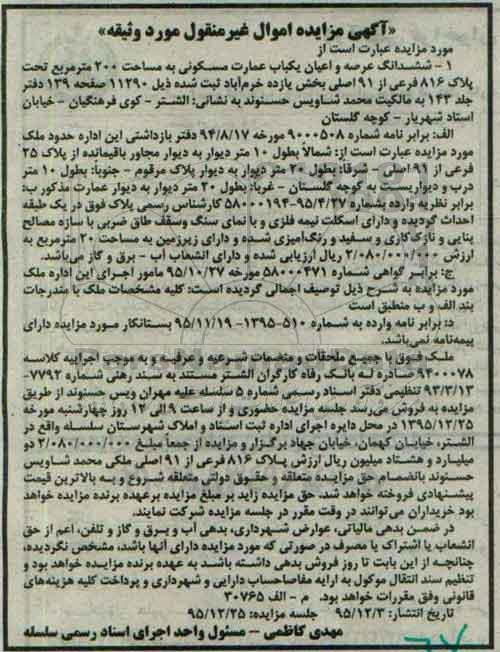 «آگهی مزایده اموال غیرمنقول مورد وثیقه»
مورد مزایده عبارت است از
۱ - ششدانگ عرصه و اعیان یکباب عمارت مسکونی به مساحت ۲۰۰ مترمربع تحت
پلاک ۸۱۶ فرعی از ۹۱ اصلی بخش یازده خرم‌آباد ثبت شده ذیل ۱۱۲۹۰ صفحه ۱۳۹ دفتر
جلد ۱۴۳ به مالکیت محمد شاویس حسنوند به نشانی: الشتر - کوی فرهنگیان - خیابان
استاد شهریار - کوچه گلستان
الف: برابر نامه شماره ۹۰۰۰۵۰۸ مورخه ۹۴/۸/۱۷ دفتر بازداشتی این اداره حدود ملک
مورد مزایده عبارت است از: شمالاً بطول ۱۰ متر دیوار به دیوار مجاور باقیمانده از پلاک ۲۵
فرعی از ۹۱ اصلی - شرقاً: بطول ۲۰ متر دیوار به دیوار پلاک مرقوم - جنوباً: بطول ۱۰ متر
درب و دیواریست به کوچه گلستان - غرباً: بطول ۲۰ متر دیوار به دیوار عمارت مذکور ب:
برابر نظریه وارده بشماره ۹۵/۴/۲۷-۵۸۰۰۰۱۹۴ کارشناس رسمی پلاک فوق در یک طبقه
احداث گردیده و دارای اسکلت نیمه فلزی و با نمای سنگ وسقف طاق ضربی با سازه مصالح
بنایی و نازک‌کاری و سفید و رنگ‌آمیزی شده و دارای زیرزمین به مساحت ۲۰ مترمربع به
ارزش ۲/۰۸۰/۰۰۰/۰۰۰ ریال ارزیابی شده و دارای انشعاب آب - برق و گاز می‌باشد.
ج: برابر گواهی شماره ۵۸۰۰۰۴۷۱ مورخه ۹۵/۱۰/۲۷ مامور اجرای این اداره ملک
مورد مزایده به شرح ذیل توصیف اجمالی گردیده است: کلیه مشخصات ملک با مندرجات
بند الف و ب منطبق است
د: برابر نامه وارده به شماره ۵۱۰-۱۳۹۵- ۹۵/۱۱/۱۹ بستانکار مورد مزایده دارای
بیمه‌نامه نمی‌باشد.
ملک فوق با جمیع ملحقات و متضمات شرعیه و عرفیه و به موجب اجراییه کلاسه
۹۴۰۰۰۷۸ صادره له بانک رفاه کارگران الشتر مستند به سند رهنی شماره ۷۷۹۲-
۹۳/۳/۱۳ تنظیمی دفتر اسناد رسمی شماره ۵ سلسله علیه مهران ویس حسنوند از طریق
مزایده به فروش می‌رسد جلسه مزایده حضوری و از ساعت ۹ الی ۱۲ روز چهارشنبه مورخه
۱۳۹۵/۱۲/۲۵ در محل دایره اجرای اداره ثبت اسناد و املاک شهرستان سلسله واقع در
الشتر، خیابان کهمان، خیابان جهاد برگزار و مزایده از جمعاً مبلغ ۲/۰۸۰/۰۰۰/۰۰۰ دو
میلیارد و هشتاد میلیون ریال ارزش پلاک ۸۱۶ فرعی از ۹۱ اصلی ملکی محمد شاویس
حسنوند بانضمام حق مزایده متعلقه و حقوق دولتی متعلقه شروع و به بالاترین قیمت
پیشنهادی فروخته خواهد شد. حق مزایده زاید بر مبلغ مزایده برعهده برنده مزایده خواهد
بود خریداران می‌توانند در وقت مقرر در جلسه مزایده شرکت نمایند.
در ضمن بدهی مالیاتی، عوارض شهرداری، بدهی آب و برق و گاز و تلفن، اعم از حق
انشعاب یا اشتراک یا مصرف در صورتی که مورد مزایده دارای آنها باشد، مشخص نگردیده،
چنانچه از این بابت تا روز فروش بدهی داشته باشد به عهده برنده مزایده خواهد بود و
تنظیم سند انتقال موکول به ارایه مفاصاحساب دارایی و شهرداری و پرداخت کلیه هزینه‌های
قانونی وفق مقررات خواهد بود. م - الف ۳۰۷۶۵
تاریخ انتشار: ۹۵/۱۲/۳ جلسه مزایده: ۹۵/۱۲/۲۵
مهدی کاظمی - مسئول واحد اجرای اسناد رسمی سلسله